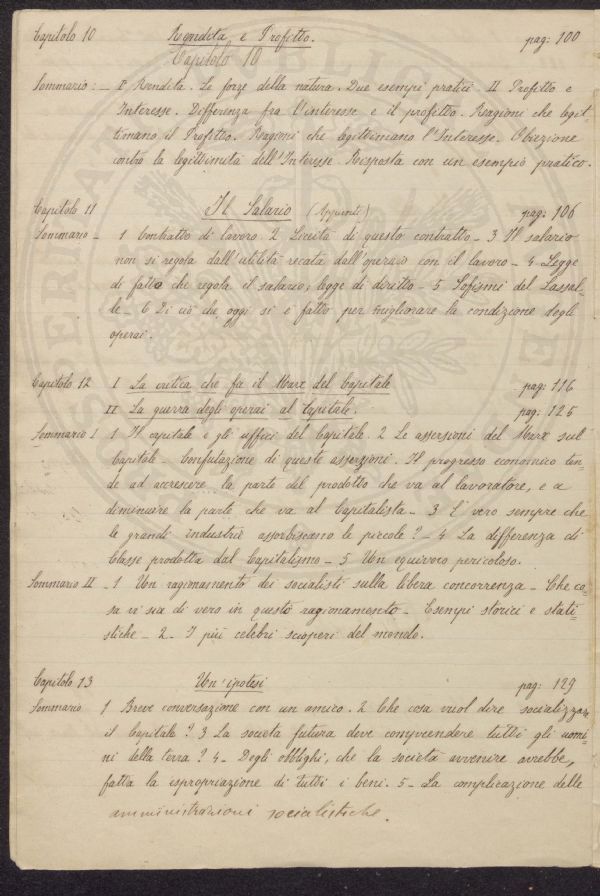 Capitolo 10 Rendita e Profitto. pag: 100
Capitolo 10
Sommario: - I° Rendita. Le forze della natura. Due esempi pratici II Profitto e
Interesse. Differenza fra l'interesse e il profitto. Ragioni che legit=
timano il Profitto. Ragioni che legittimano l'Interesse. Obiezione
contro la legittimità dell'Interesse Risposta con un esempio pratico.
Capitolo 11 Il Salario (Appunti) pag: 106
Sommario - 1 Contratto di lavoro 2 Liceità di questo contratto - 3 Il salario
non si regola dall'utilità recata dall'operaio con il lavoro - 4 Legge
di fatto che regola il salario; legge di diritto - 5 Sofismi del Lassal=
le - 6 Di ciò che oggi si è fatto per migliorare la condizione degli
operai.
Capitolo 12 I La critica che fa il Marx del Capitale pag: 116
II La guerra degli operai al Capitale. pag: 125
Sommario I 1 Il capitale e gli uffici del Capitale. 2 Le asserzioni del Marx sul
Capitale - Confutazione di queste asserzioni. Il progresso economico ten=
de ad accrescere la parte del prodotto che va al lavoratore, e a
diminuire la parte che va al Capitalista - 3 È vero sempre che
le grandi industrie assorbiscano le piccole? - 4 La differenza di
Classe prodotta dal Capitalismo - 5 Un equivoco pericoloso.
Sommario II - 1 Un ragionamento dei socialisti sulla libera concorrenza - Che co=
sa vi sia di vero in questo ragionamento - Esempi storici e stati=
stiche - 2 - I più celebri scioperi del mondo.
Capitolo 13 Un'ipotesi pag: 129
Sommario 1 Breve conversazione con un amico. 2 Che cosa vuol dire socializzare
il Capitale? 3 La società futura deve comprendere tutti gli uomi=
ni della terra? 4 - Degli obblighi, che la società avvenire avrebbe,
fatta la espropriazione di tutti i beni. 5 - La complicazione delle
amministrazioni socialistiche.